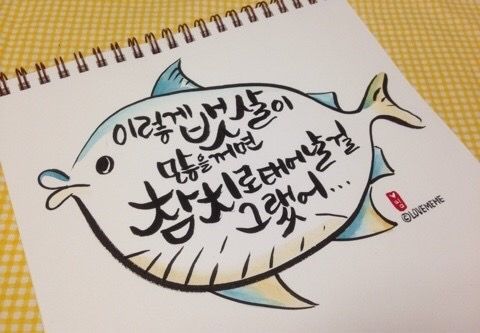 이렇게 뱃살이
많을꺼면
참치로 태어날걸
그랬어...
©LOVEMEME